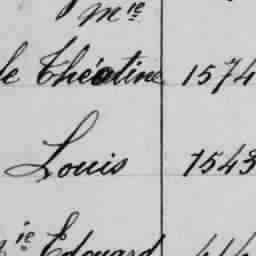 mie
le Théotine 1574
Louis 1543
ie Edouard